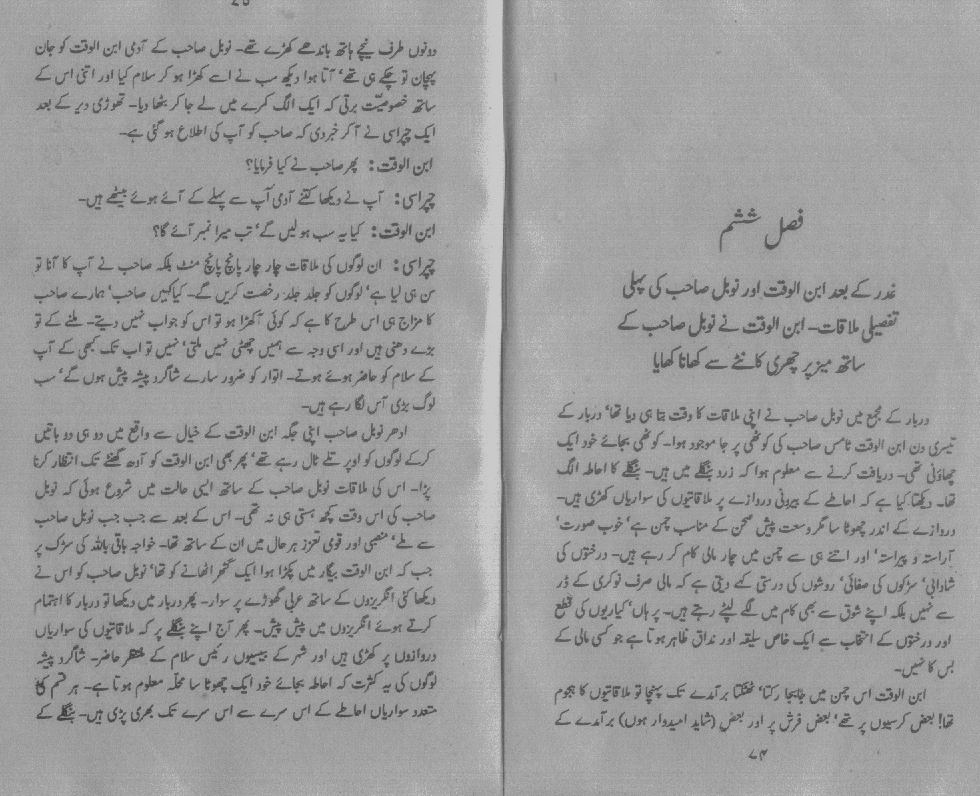 فصل ششم
غدر کے بعد ابن الوقت اور نوبل صاحب کی پہلی
تفصیلی ملاقات۔ ابن الوقت نے نوبل صاحب کے
ساتھ میز پر چھری کانٹے سے کھانا کھایا
دربار کے مجمع میں نوبل صاحب نے اپنی ملاقات کا وقت بتا ہی دیا تھا‘ دربار کے
تیسری دن ابن الوقت ٹامس صاحب کی کوٹھی پر جا موجود ہوا۔ کوٹھی بجائے خود ایک
چھاؤنی تھی۔ دریافت کرنے سے معلوم ہوا کہ زرد بنگلے میں ہیں۔ بنگلے کا احاطہ الگ
تھا۔ دیکھتا کیا ہے کہ احاطے کے بیرونی دروازے پر ملاقاتیوں کی سواریاں کھڑی ہیں۔
دروازے کے اندر چھوٹا سا مگر وسعت پیش صحن کے مناسب چمن ہے‘ خوب صورت‘
آراستہ و پیراستہ‘ اور اتنے ہی سے چمن میں چار مالی کام کر رہے ہیں۔ درختوں کی
شادابی‘ سڑکوں کی صفائی‘ روشوں کی درستی کہے دیتی ہے کہ مالی صرف نوکری کے ڈر
سے نہیں بلکہ اپنے شوق سے بھی کام میں لگے لپٹے رہتے ہیں۔ پر ہاں‘ کیاریوں کی قطع
اور درختوں کے انتخاب سے ایک خاص سلیقہ اور مذاق ظاہر ہوتا ہے جو کسی مالی کے
بس کا نہیں۔
ابن الوقت اس چمن میں جابجا رکتا‘ ٹھٹکتا برآمدے تک پہنچا تو ملاقاتیوں کا ہجوم
تھا! بعض کرسیوں پر تھے‘ بعض فرش پر اور بعض (شاید امیدوار ہوں) برآمدے کے
۷۴
۷۵
دونوں طرف نیچے ہاتھ باندھے کھڑے تھے۔ نوبل صاحب کے آدمی ابن الوقت کو جان
پہچان تو چکے ہی تھے‘ آتا ہوا دیکھ سب نے اسے کھڑا ہو کر سلام کیا اور اتنی اس کے
ساتھ خصوصیّت برتی کہ ایک الگ کمرے میں لے جا کر بٹھا دیا۔ تھوڑی دیر کے بعد
ایک چپراسی نے آ کر خبر دی کہ صاحب کو آپ کی اطلاع ہو گئی ہے۔
ابن الوقت: پھر صاحب نے کیا فرمایا؟
چپراسی: آپ نے دیکھا کتنے آدمی آپ سے پہلے کے آئے ہوئے بیٹھے ہیں۔
ابن الوقت: کیا یہ سب ہولیں گے‘ تب میرا نمبر آئے گا؟
چپراسی: ان لوگوں کی ملاقات چار چار پانچ پانچ منٹ بلکہ صاحب نے آپ کا آنا تو
سن ہی لیا ہے‘ لوگوں کو جلد جلد رخصت کریں گے۔ کیا کہیں صاحب‘ ہمارے صاحب
کا مزاج ہی اس طرح کا ہے کہ کوئی آکھڑا ہو تو اس کو جواب نہیں دیتے۔ ملنے کے تو
بڑے دھنی ہیں اور اسی وجہ سے ہمیں چھٹی نہیں ملتی‘ نہیں تو اب تک کبھی کے آپ
کے سلام کو حاضر ہوئے ہوتے۔ اتوار کو ضرور سارے شاگرد پیشہ پیش ہوں گے‘ سب
لوگ بڑی آس لگا رہے ہیں۔
ادھر نوبل صاحب اپنی جگہ ابن الوقت کے خیال سے واقع میں دو ہی دو باتیں
کرکے لوگوں کو اوپر تلے ٹال رہے تھے‘ پھر بھی ابن الوقت کو آدھ گھنٹے تک انتظار کرنا
پڑا۔ اس کی ملاقات نوبل صاحب کے ساتھ ایسی حالت میں شروع ہوئی کہ نوبل
صاحب کی اس وقت کچھ ہستی ہی نہ تھی۔ اس کے بعد سے جب جب نوبل صاحب
سے ملے‘ منصبی اور قومی تعزز ہر حال میں ان کے ساتھ تھا۔ خواجہ باقی باللہ کی سڑک پر
جب کہ ابن الوقت بیگار میں پکڑا ہوا ایک گٹھر اٹھانے کو تھا‘ نوبل صاحب کو اس نے
دیکھا کئی انگریزوں کے ساتھ عربی گھوڑے پر سوار۔ پھر دربار میں دیکھا تو دربار کا اہتمام
کرتے ہوئے انگریزوں میں پیش پیش۔ پھر آج اپنے بنگلے پر کہ ملاقاتیوں کی سواریاں
دروازوں پر کھڑی ہیں اور شہر کے بیسیوں رئیس سلام کے منتظر حاضر۔ شاگرد پیشہ
لوگوں کی یہ کثرت کہ احاطہ بجائے خود ایک چھوٹا سا محلہ معلوم ہوتا ہے۔ ہر قسم کی
متعدد سواریاں احاطے کے اس سرے سے اس سرے تک بھری پڑی ہیں۔ بنگلے کے